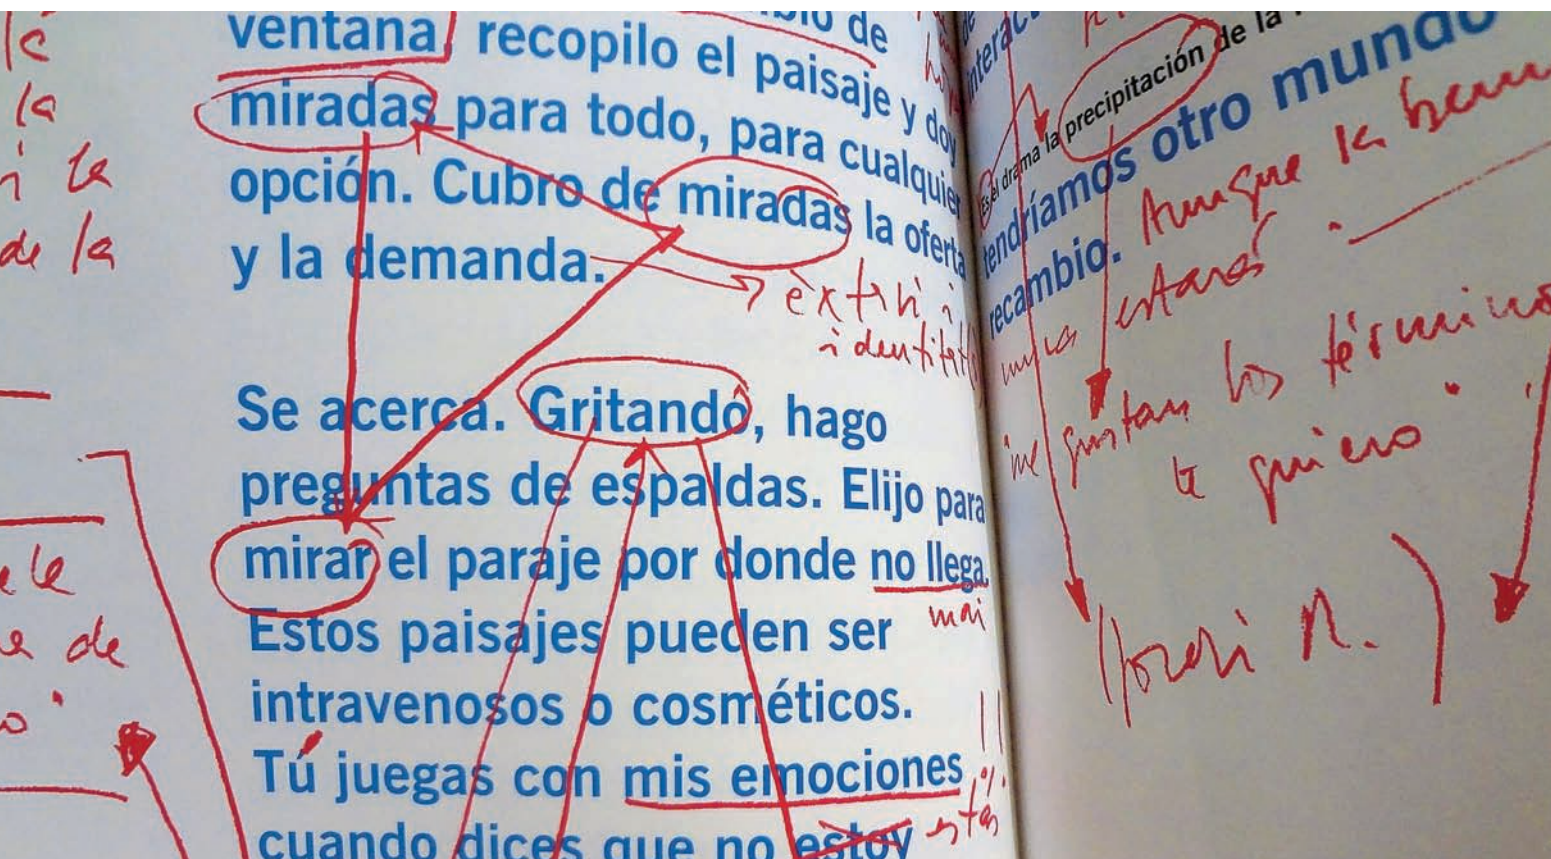 la
de la
de
ventana, recopilo el paisaje y doy
miradas para todo, para cualquier
opción. Cubro de miradas la oferta
y la demanda.
èxtasi i
identitat
Se acerca. Gritando, hago
preguntas de espaldas. Elijo para
mirar el paraje por donde no llega.
mai
Estos paisajes pueden ser
intravenosos o cosméticos.
Tú juegas con mis emociones
cuando dices que no estoy estás
de
Es el drama la precipitación de la
tendríamos otro mundo
recambio.
Aunque la
nunca estarás
me gustan los términos
te quiero"